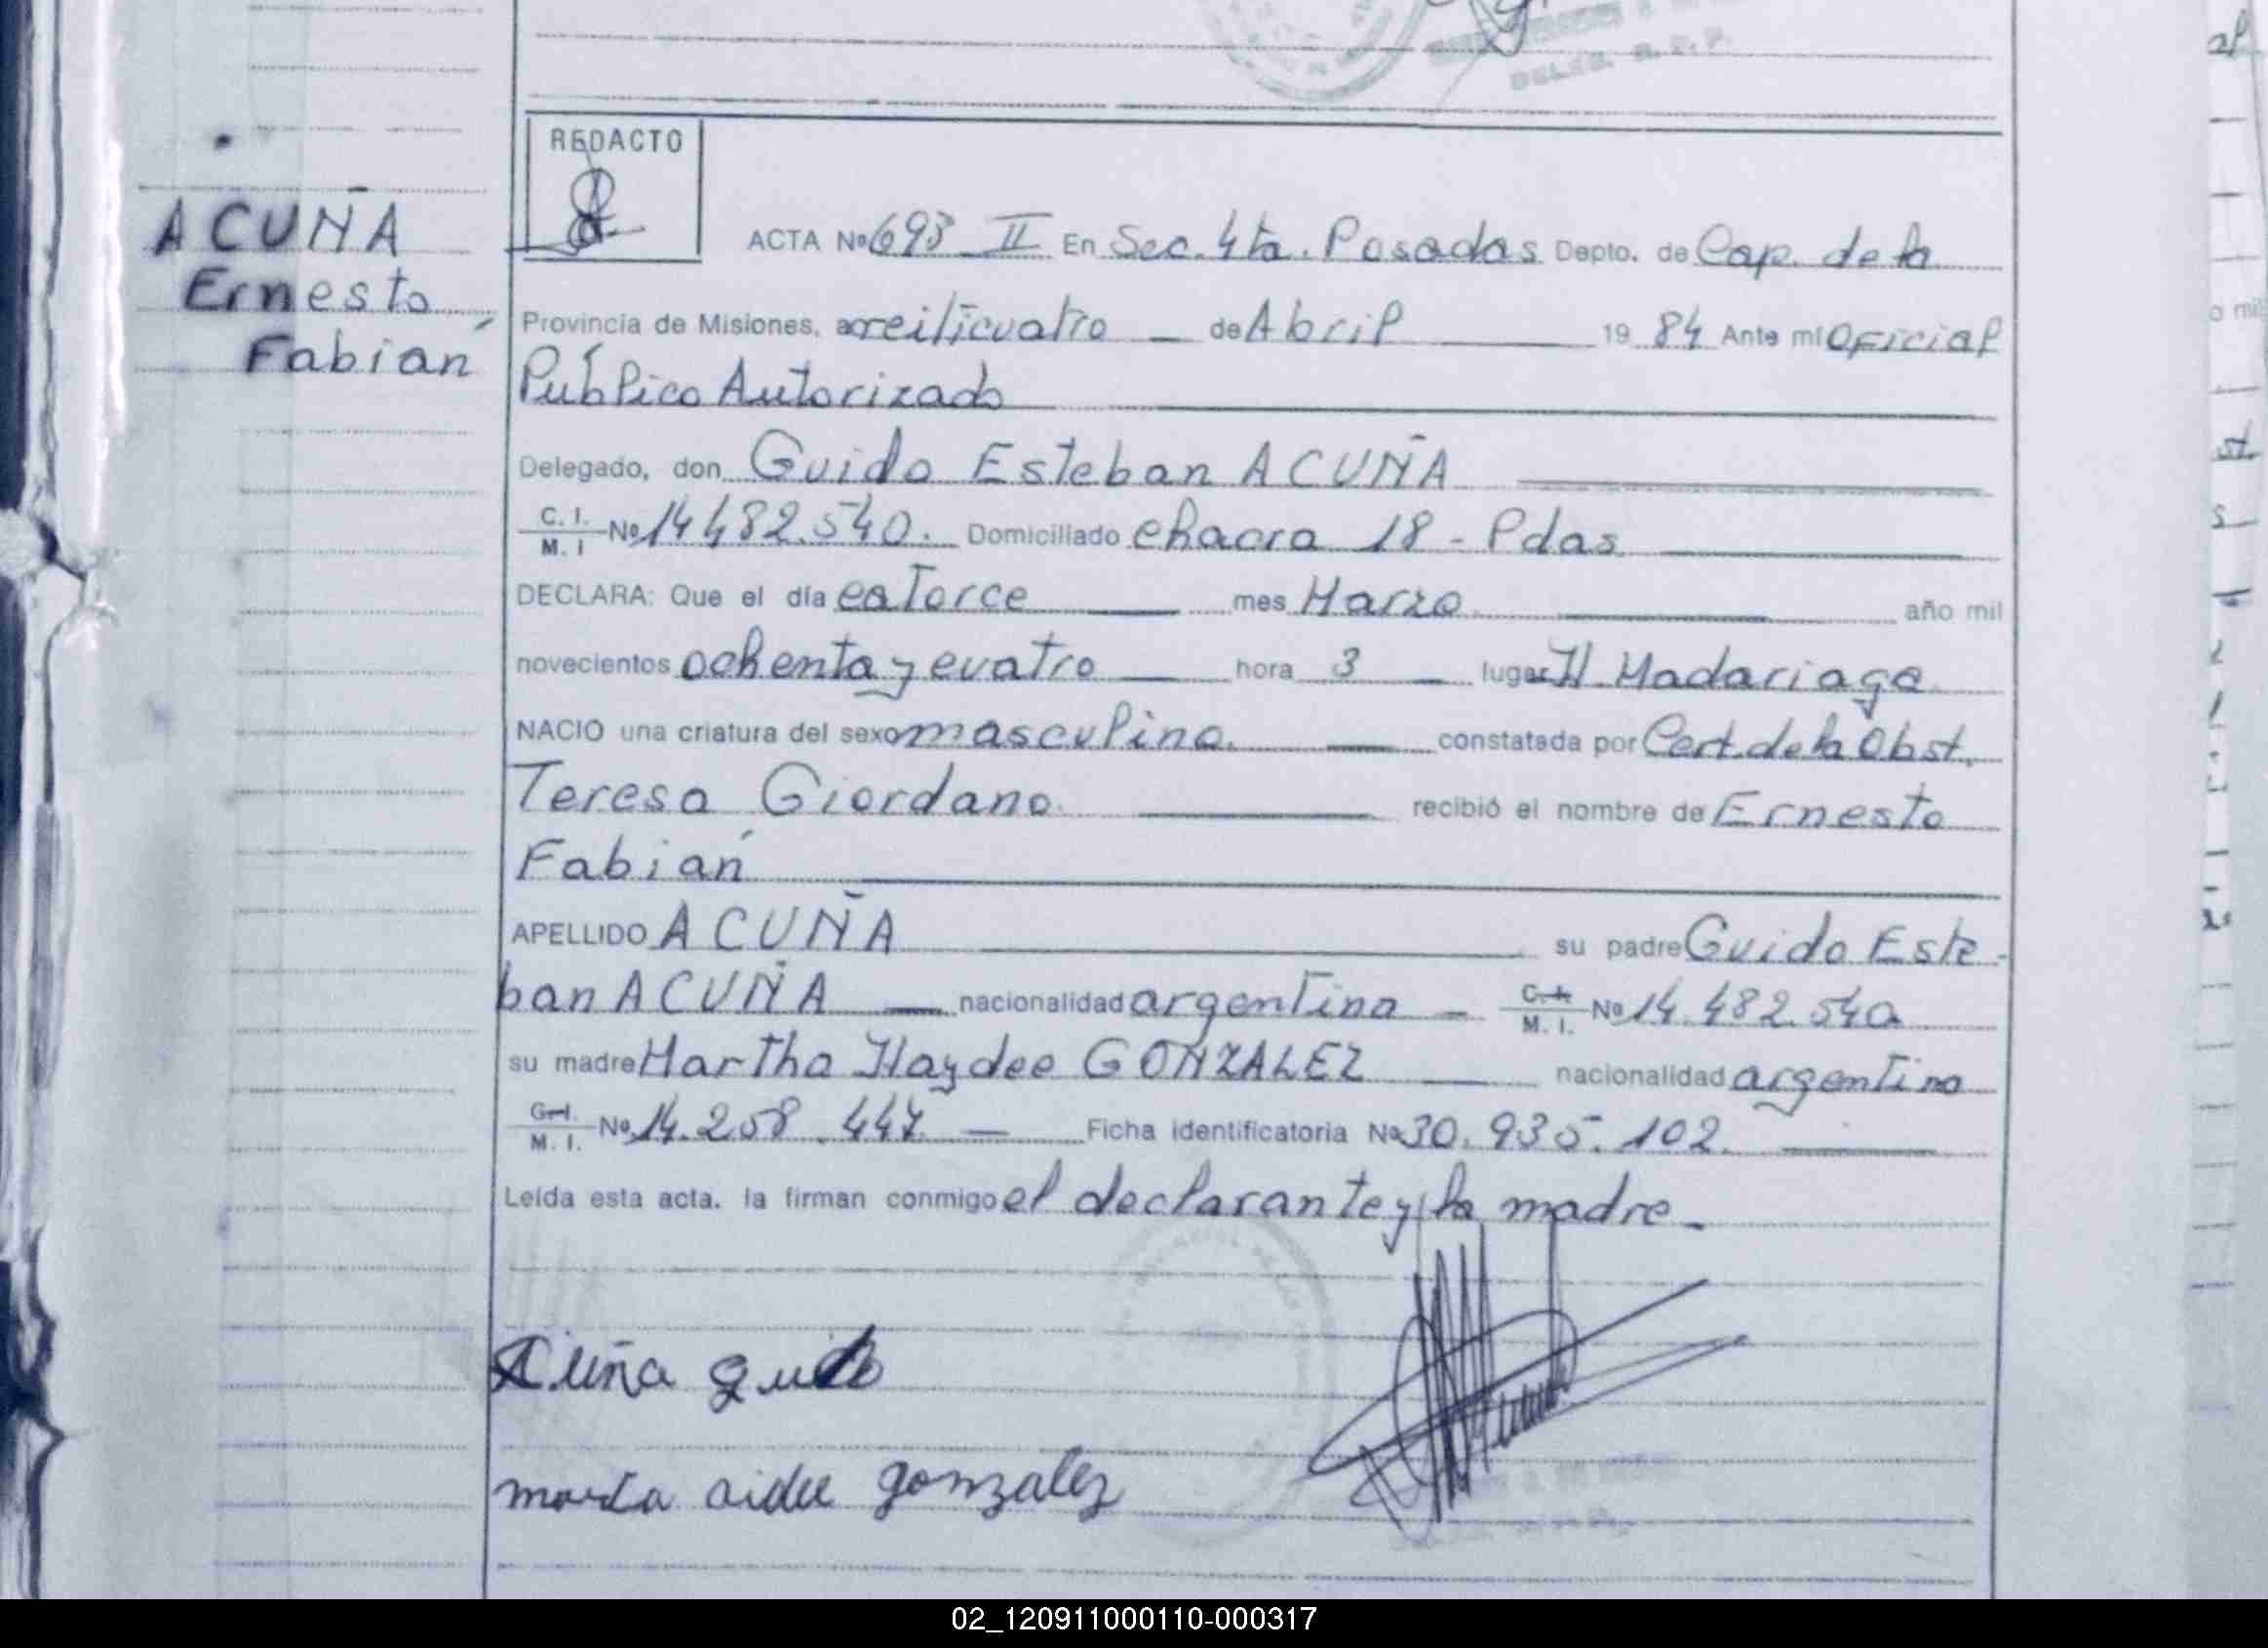 DELEG. R. P. P.
REDACTO
ACUÑA
Ernesto
Fabián
ACTA Nº 693 II En Sec. 4ta. Posadas Depto. de Cap. de la
Provincia de Misiones, a de Abril 1984 Ante mí Oficial
Público Autorizado
Delegado, don Guido Esteban ACUÑA
C. I. M. I Nº 14482.540. Domiciliado chacra 18 - Pdas
DECLARA: Que el día catorce mes Marzo año mil
novecientos ochenta y cuatro hora 3 lugar H. Madariaga
NACIO una criatura del sexo masculino. constatada por Cert. de la Obst.
Teresa Giordano recibió el nombre de Ernesto
Fabián
APELLIDO ACUÑA su padre Guido Este-
ban ACUÑA nacionalidad argentina - C. I. M. I. Nº 14.482.540
su madre Martha Haydee GONZALEZ nacionalidad argentina
C. I. M. I. Nº 14.258.447 Ficha identificatoria Nº 30.935.102.
Leída esta acta, la firman conmigo el declarante y la madre.
Acuña guido
marta aidee gonzalez
02_120911000110-000317